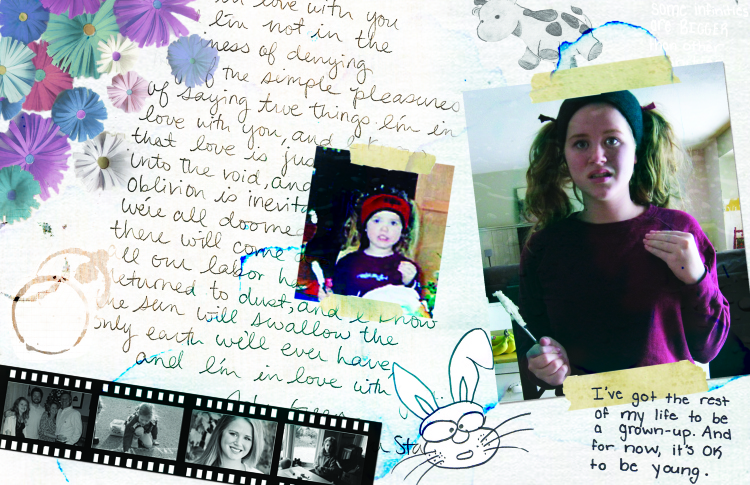 love with you
I'm not in the
iness of denying
the simple pleasures
of saying true things. I'm in
love with you, and
that love is jus
unto the void, and
oblivion is inevita
we're all doomed
there will come a
all our labor ha
returned to dust, and I know
the sun will swallow the
only earth we'll ever have
and I'm in love with
some infinities
are BIGGER
I've got the rest
of my life to be
a grown-up. And
for now, it's OK
to be young.